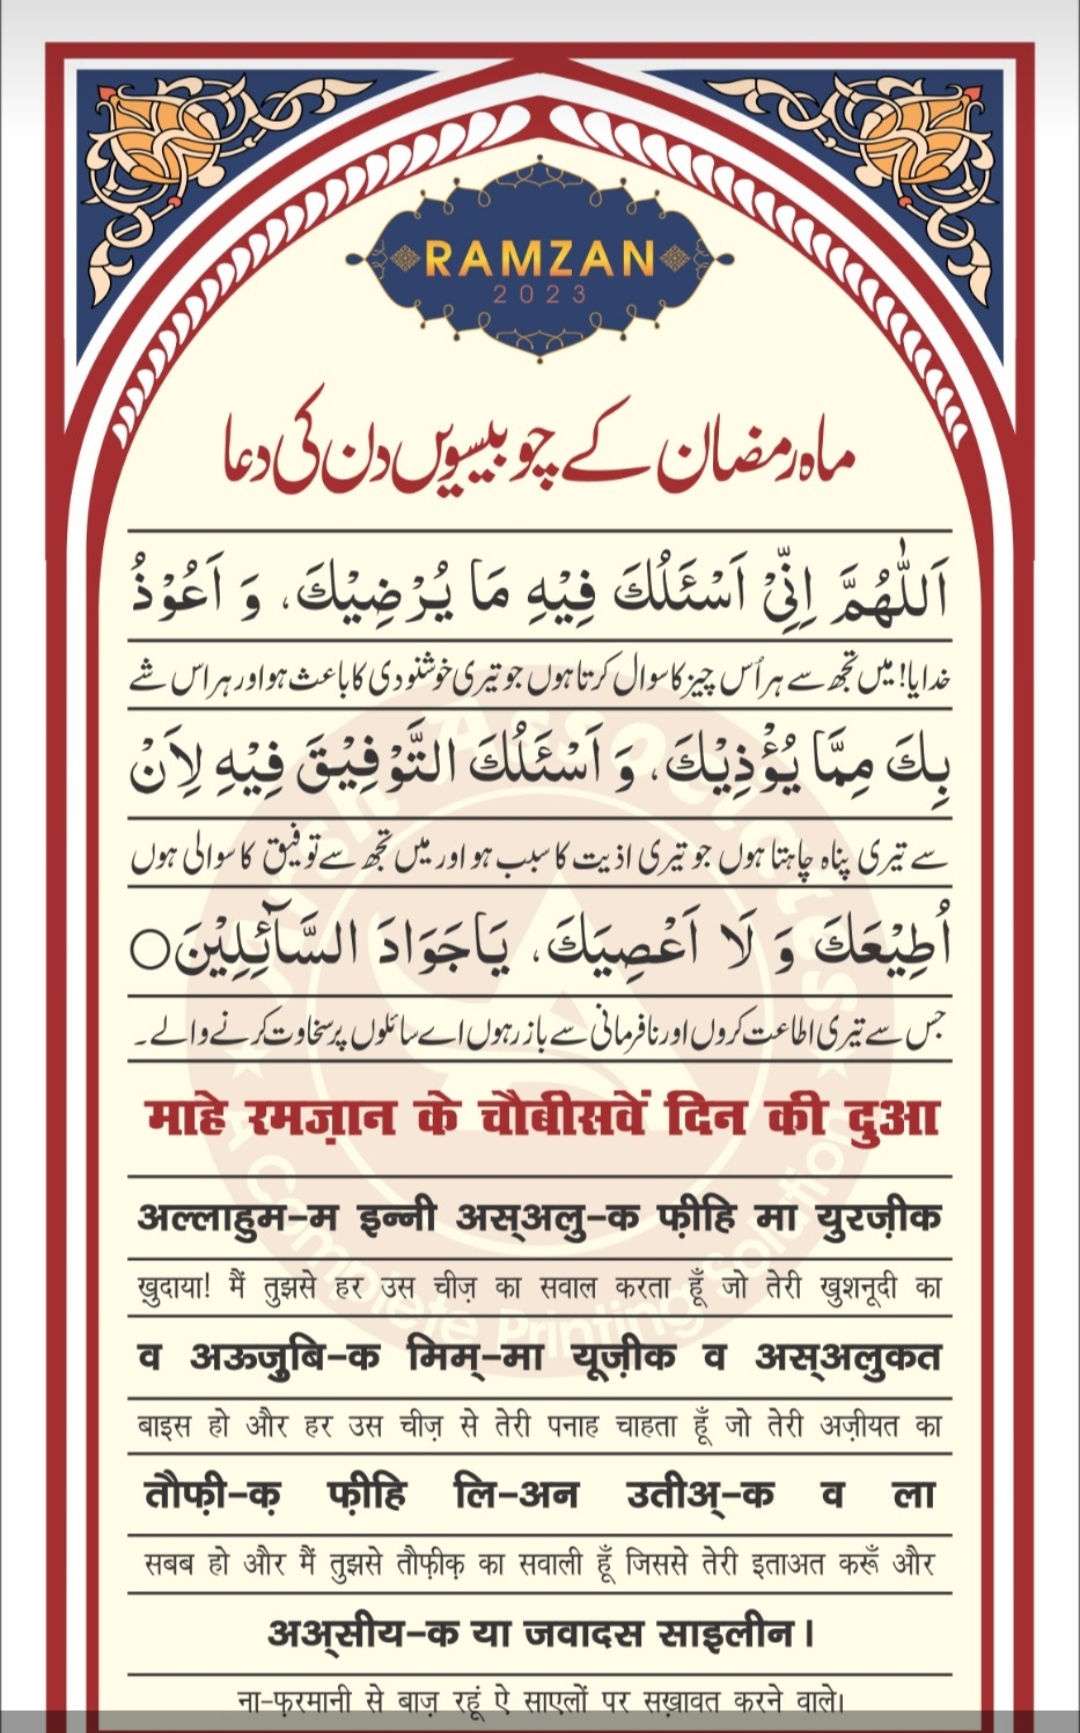 RAMZAN
2023
ماہ رمضان کے چوبیسویں دن کی دعا
اَللّٰهُمَّ اِنِّيْ اَسْئَلُكَ فِيْهِ مَا يُرْضِيْكَ، وَ اَعُوْذُ
خدایا! میں تجھ سے ہر اُس چیز کا سوال کرتا ہوں جو تیری خوشنودی کا باعث ہو اور ہر اس شے
بِكَ مِمَّا يُؤْذِيْكَ، وَ اَسْئَلُكَ التَّوْفِيْقَ فِيْهِ لِاَنْ
سے تیری پناہ چاہتا ہوں جو تیری اذیت کا سبب ہو اور میں تجھ سے توفیق کا سوالی ہوں
اُطِيْعَكَ وَ لَا اَعْصِيَكَ، يَاجَوَادَ السَّآئِلِيْنَ○
جس سے تیری اطاعت کروں اور نافرمانی سے باز رہوں اے سائلوں پر سخاوت کرنے والے۔
माहे रमज़ान के चौबीसवें दिन की दुआ
अल्लाहुम-म इन्नी अस्अलु-क फ़ीहि मा युरज़ीक
ख़ुदाया! मैं तुझसे हर उस चीज़ का सवाल करता हूँ जो तेरी खुशनूदी का
व अऊज़ुबि-क मिम्-मा यूज़ीक व अस्अलुकत
बाइस हो और हर उस चीज़ से तेरी पनाह चाहता हूँ जो तेरी अज़ीयत का
तौफ़ी-क़ फ़ीहि लि-अन उतीअ्-क व ला
सबब हो और मैं तुझसे तौफ़ीक़ का सवाली हूँ जिससे तेरी इताअत करूँ और
अअ्सीय-क या जवादस साइलीन।
ना-फ़रमानी से बाज़ रहूं ऐ साएलों पर सख़ावत करने वाले।
Associates
A Complete Printing Solution